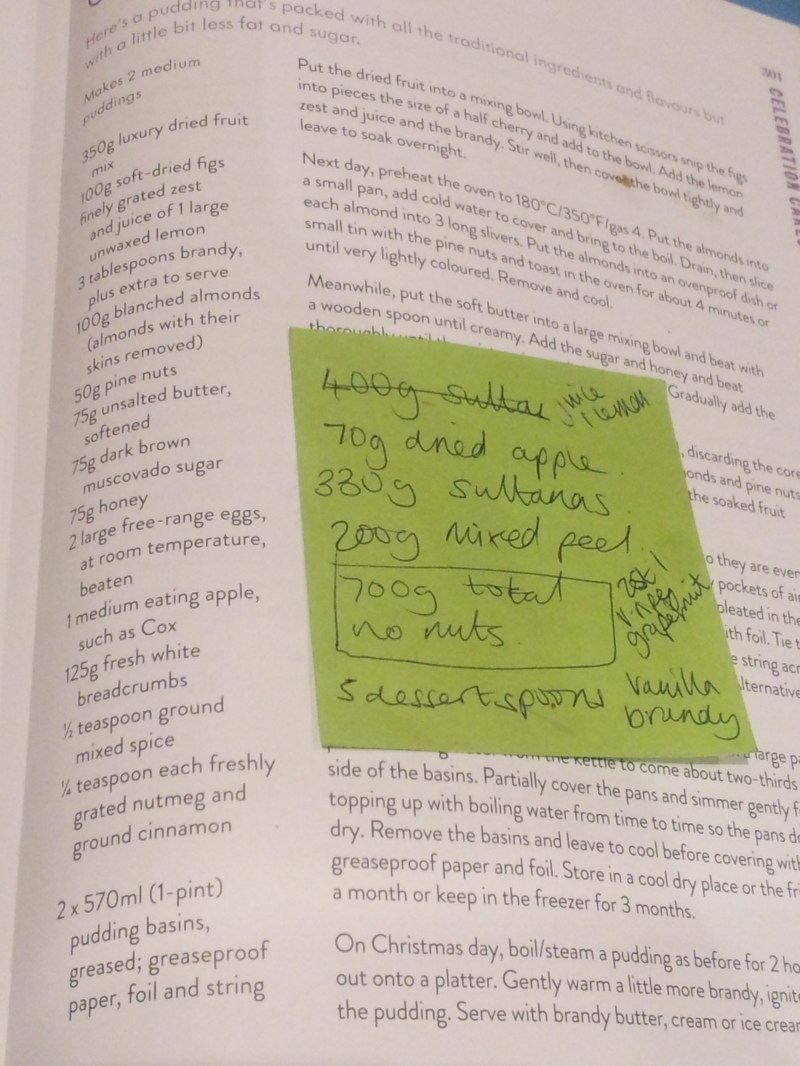 Here's a pudding that's packed with all the traditional ingredients and flavours but
with a little bit less fat and sugar.
Makes 2 medium
puddings
350g luxury dried fruit
mix
100g soft-dried figs
finely grated zest
and juice of 1 large
unwaxed lemon
3 tablespoons brandy,
plus extra to serve
100g blanched almonds
(almonds with their
skins removed)
50g pine nuts
75g unsalted butter,
softened
75g dark brown
muscovado sugar
75g honey
2 large free-range eggs,
at room temperature,
beaten
1 medium eating apple,
such as Cox
125g fresh white
breadcrumbs
½ teaspoon ground
mixed spice
¼ teaspoon each freshly
grated nutmeg and
ground cinnamon
2 x 570ml (1-pint)
pudding basins,
greased; greaseproof
paper, foil and string
Put the dried fruit into a mixing bowl. Using kitchen scissors snip the figs
into pieces the size of a half cherry and add to the bowl. Add the lemon
zest and juice and the brandy. Stir well, then cover the bowl tightly and
leave to soak overnight.
Next day, preheat the oven to 180°C/350°F/gas 4. Put the almonds into
a small pan, add cold water to cover and bring to the boil. Drain, then slice
each almond into 3 long slivers. Put the almonds into an ovenproof dish or
small tin with the pine nuts and toast in the oven for about 4 minutes or
until very lightly coloured. Remove and cool.
Meanwhile, put the soft butter into a large mixing bowl and beat with
a wooden spoon until creamy. Add the sugar and honey and beat
thoroughly
Gradually add the
, discarding the core
onds and pine nuts
the soaked fruit
o they are even
pockets of air
pleated in the
ith foil. Tie t
e string acr
lternative
large pa
the kettle to come about two-thirds
side of the basins. Partially cover the pans and simmer gently f
topping up with boiling water from time to time so the pans do
dry. Remove the basins and leave to cool before covering with
greaseproof paper and foil. Store in a cool dry place or the fri
a month or keep in the freezer for 3 months.
On Christmas day, boil/steam a pudding as before for 2 ho
out onto a platter. Gently warm a little more brandy, ignite
the pudding. Serve with brandy butter, cream or ice cream
400g sultan
juice
1 lemon
70g dried apple
330g sultanas
200g mixed peel
700g total
no nuts
zest 1
grapefruit
5 dessertspoons vanilla
brandy
301
CELEBRATION CAKES